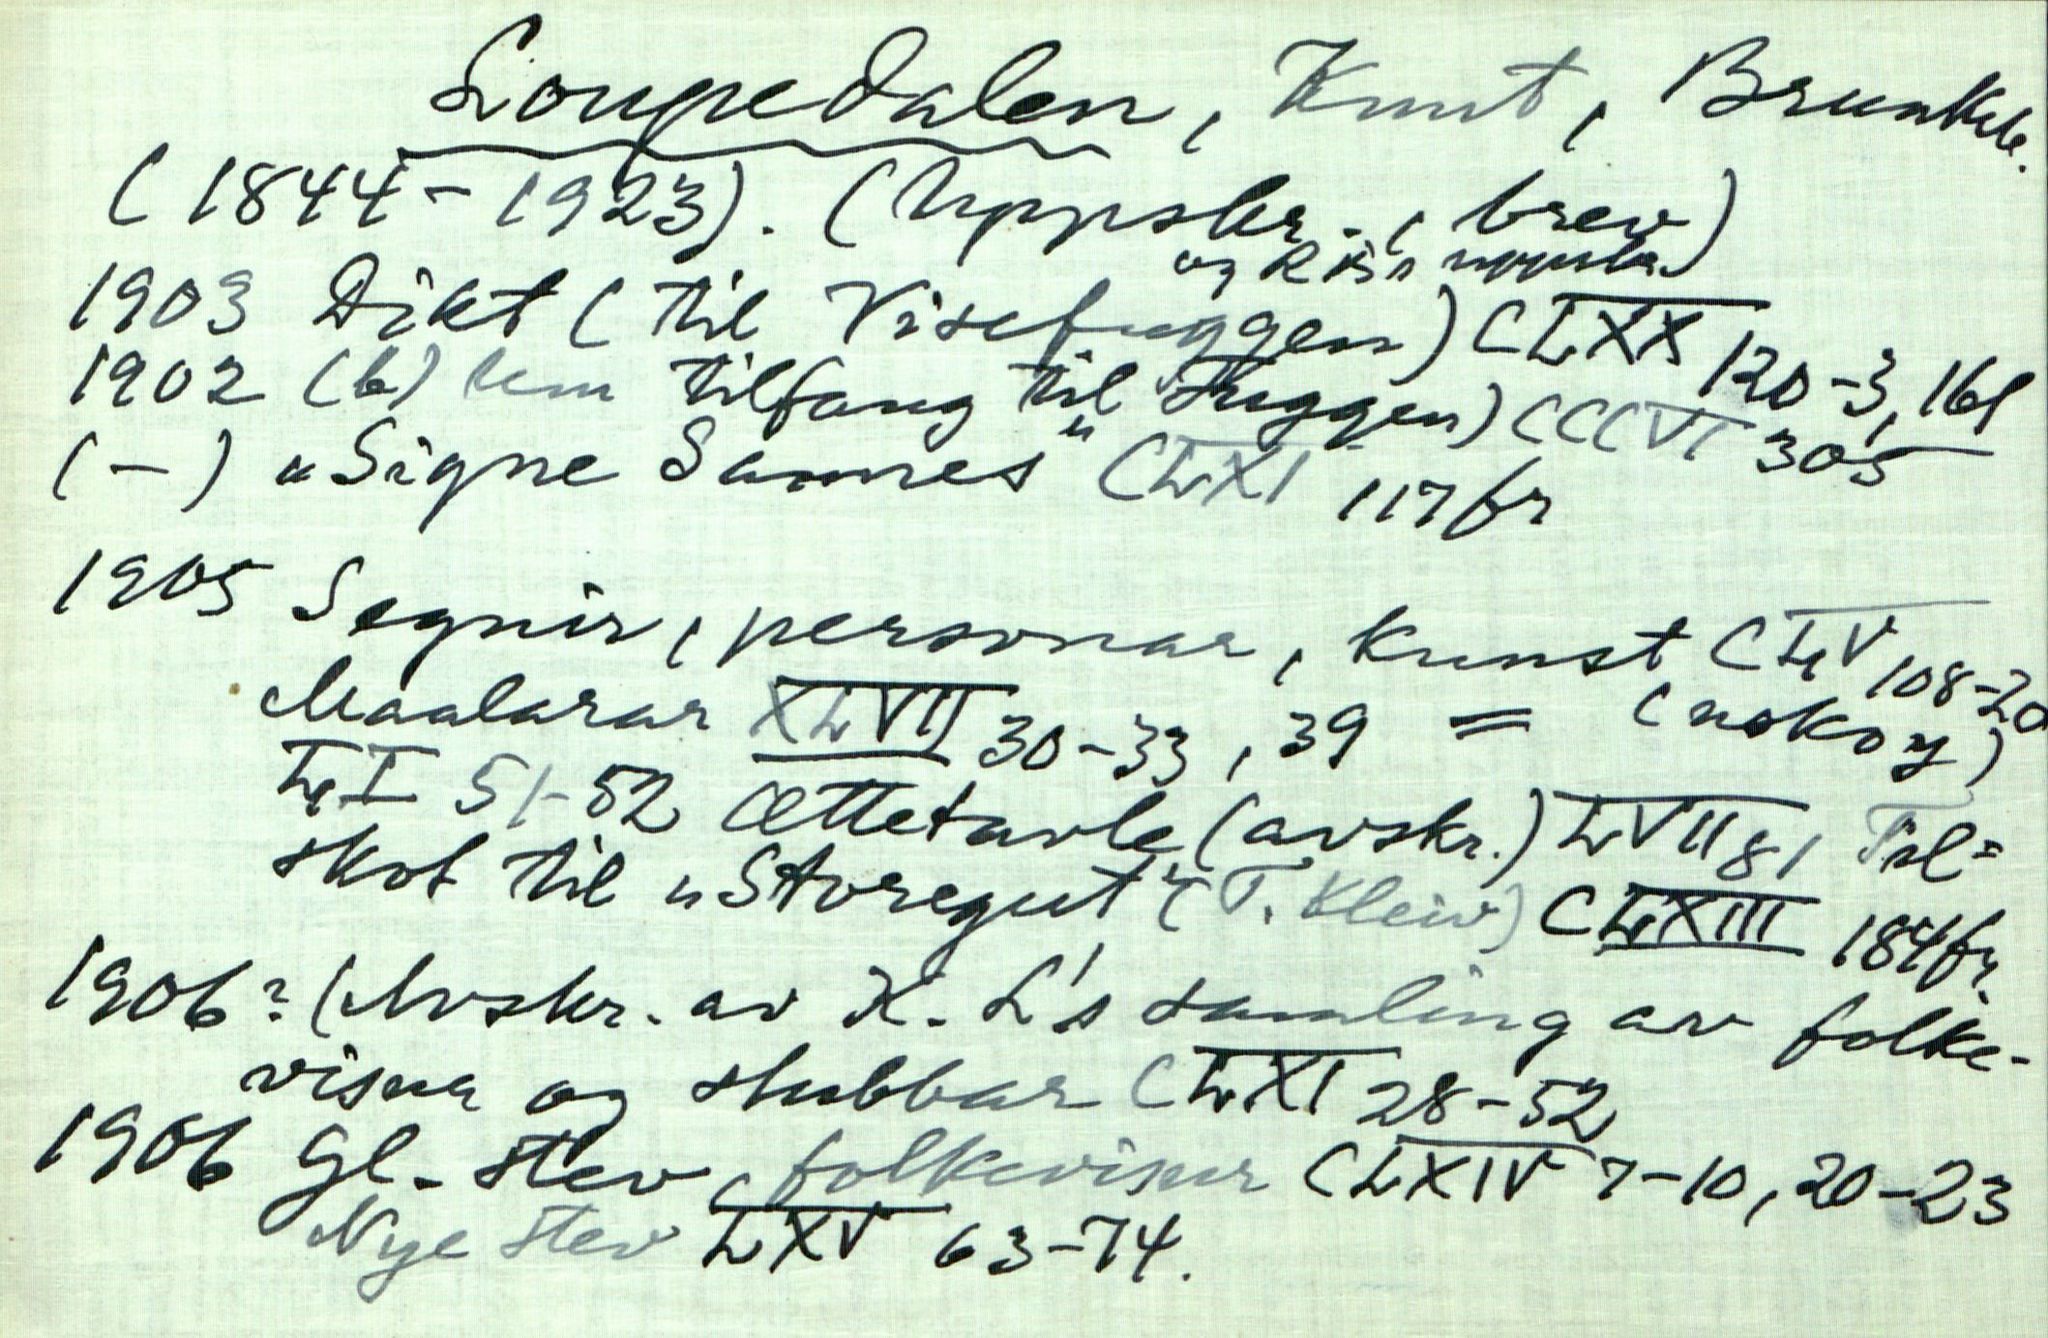 Loupedalen, Knut, Brunkeb.
(1844-1923). (Uppskr., brev)
og RBs uppskr.)
1903 Dikt (til Visefuggen) CLXX 120-3, 161
1902 (b) um tilfang til "Fuggen) CCCVI 305
(-) "Signe Sannes" CLXI 117fr
1905 Segnir, personar, kunst CLV 108-20
Maalarar XLVII 30-33, 39 = (nokoy)
LI 51-52 Ættetavle (avskr.) LVII 81 Til=
skot til "Storegut" (T. Kleiv) CLXIII 184fr.
1906? (Avskr. av K. L's samling av folke-
visur og stubbar CLXI 28-52
1906 Gl. stev, folkevisur CLXIV 7-10, 20-23
Nye stev CLXV 63-74.